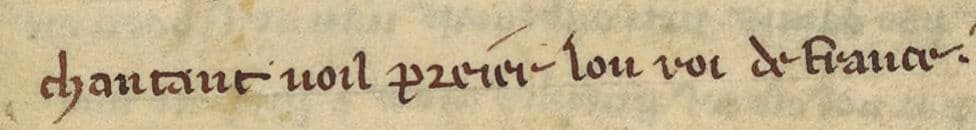 chantant uoil preier lou roi de france.